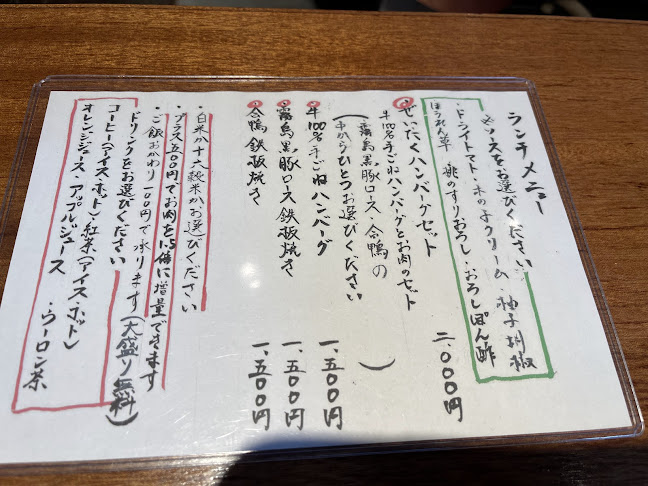 ランチメニュー
※ソースをお選びください
・ドライトマト・木の子クリーム・柚子胡椒
ほうれん草 桃のすりおろし・おろしぽん酢
ぜいたくハンバーグセット 二、000円
牛100%手ごねハンバーグとお肉のセット
(霧島黒豚ロース・合鴨の
中からひとつお選びください)
牛100%手ごねハンバーグ 一、五00円
霧島黒豚ロース鉄板焼き 一、五00円
合鴨鉄板焼き 一、五00円
・白米か十六穀米かお選びください
・プラス五00円でお肉を1.5倍に増量できます
・ご飯おかわり一00円で承ります(大盛り無料)
ドリンクをお選びください
コーヒー(アイス・ホット)・紅茶(アイス・ホット)
オレンジジュース・アップルジュース・ウーロン茶